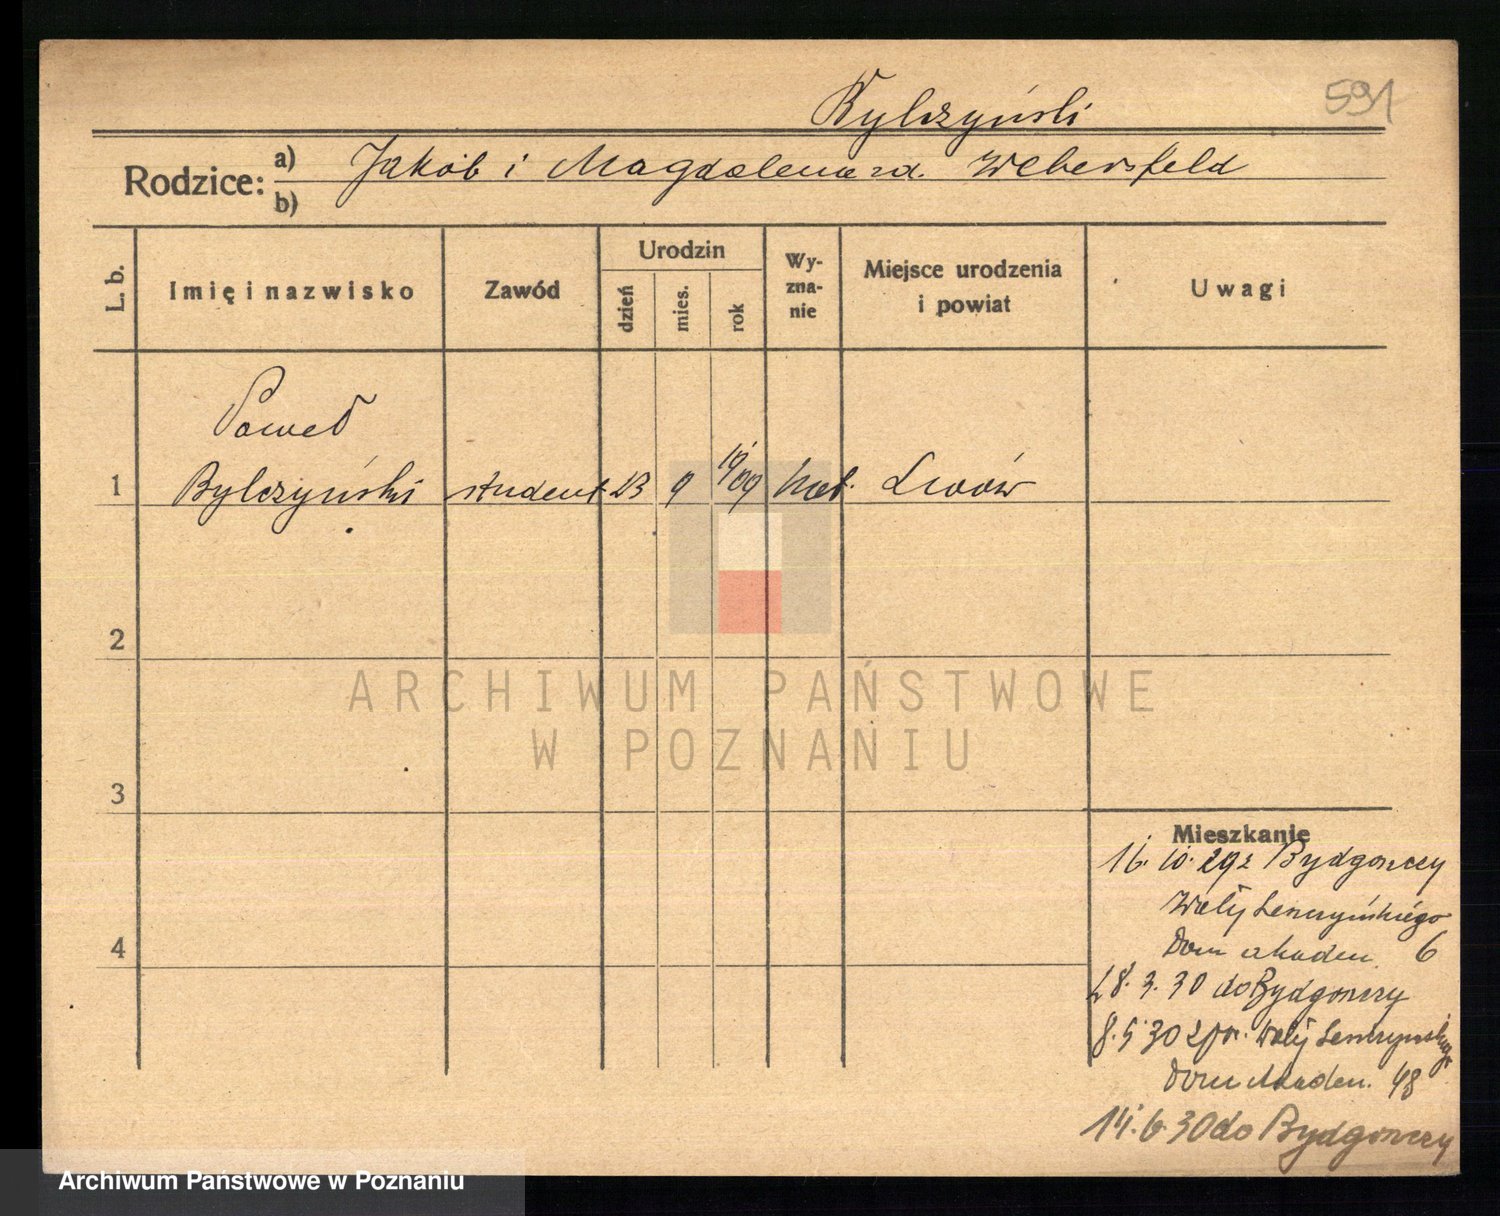 591
Bylczyński
Rodzice: a) b)
Jakób i Magdalena zd. Webersfeld
L. b.
Imię i nazwisko
Zawód
Urodzin
dzień
mies.
rok
Wy-
zna-
nie
Miejsce urodzenia
i powiat
Uwagi
Paweł
1 Bylczyński student 23 9 19/09 kat. Lwów
2
ARCHIWUM PAŃSTWOWE
W POZNANIU
3
Mieszkanie
16. 10. 29 z Bydgoszczy
Wały Leszczyńskiego
Dom akadem 6
28. 3. 30 do Bydgoszczy
4
8. 5. 30 zpr. Wały Leszczyńskiego
Dom Akadem. 48
14. 6. 30 do Bydgoszczy
Archiwum Państwowe w Poznaniu